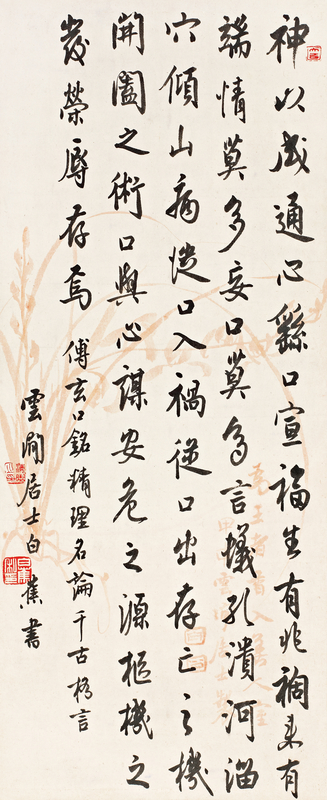 神以感通心繇口宣福生有兆禍来有
端情莫多妄口莫多言蟻孔潰河溜
穴傾山病從口入禍從口出存亡之機
開闔之術口與心謀安危之源樞機之
發榮辱存焉 傅玄口銘精理名論千古格言
雲間居士白蕉書